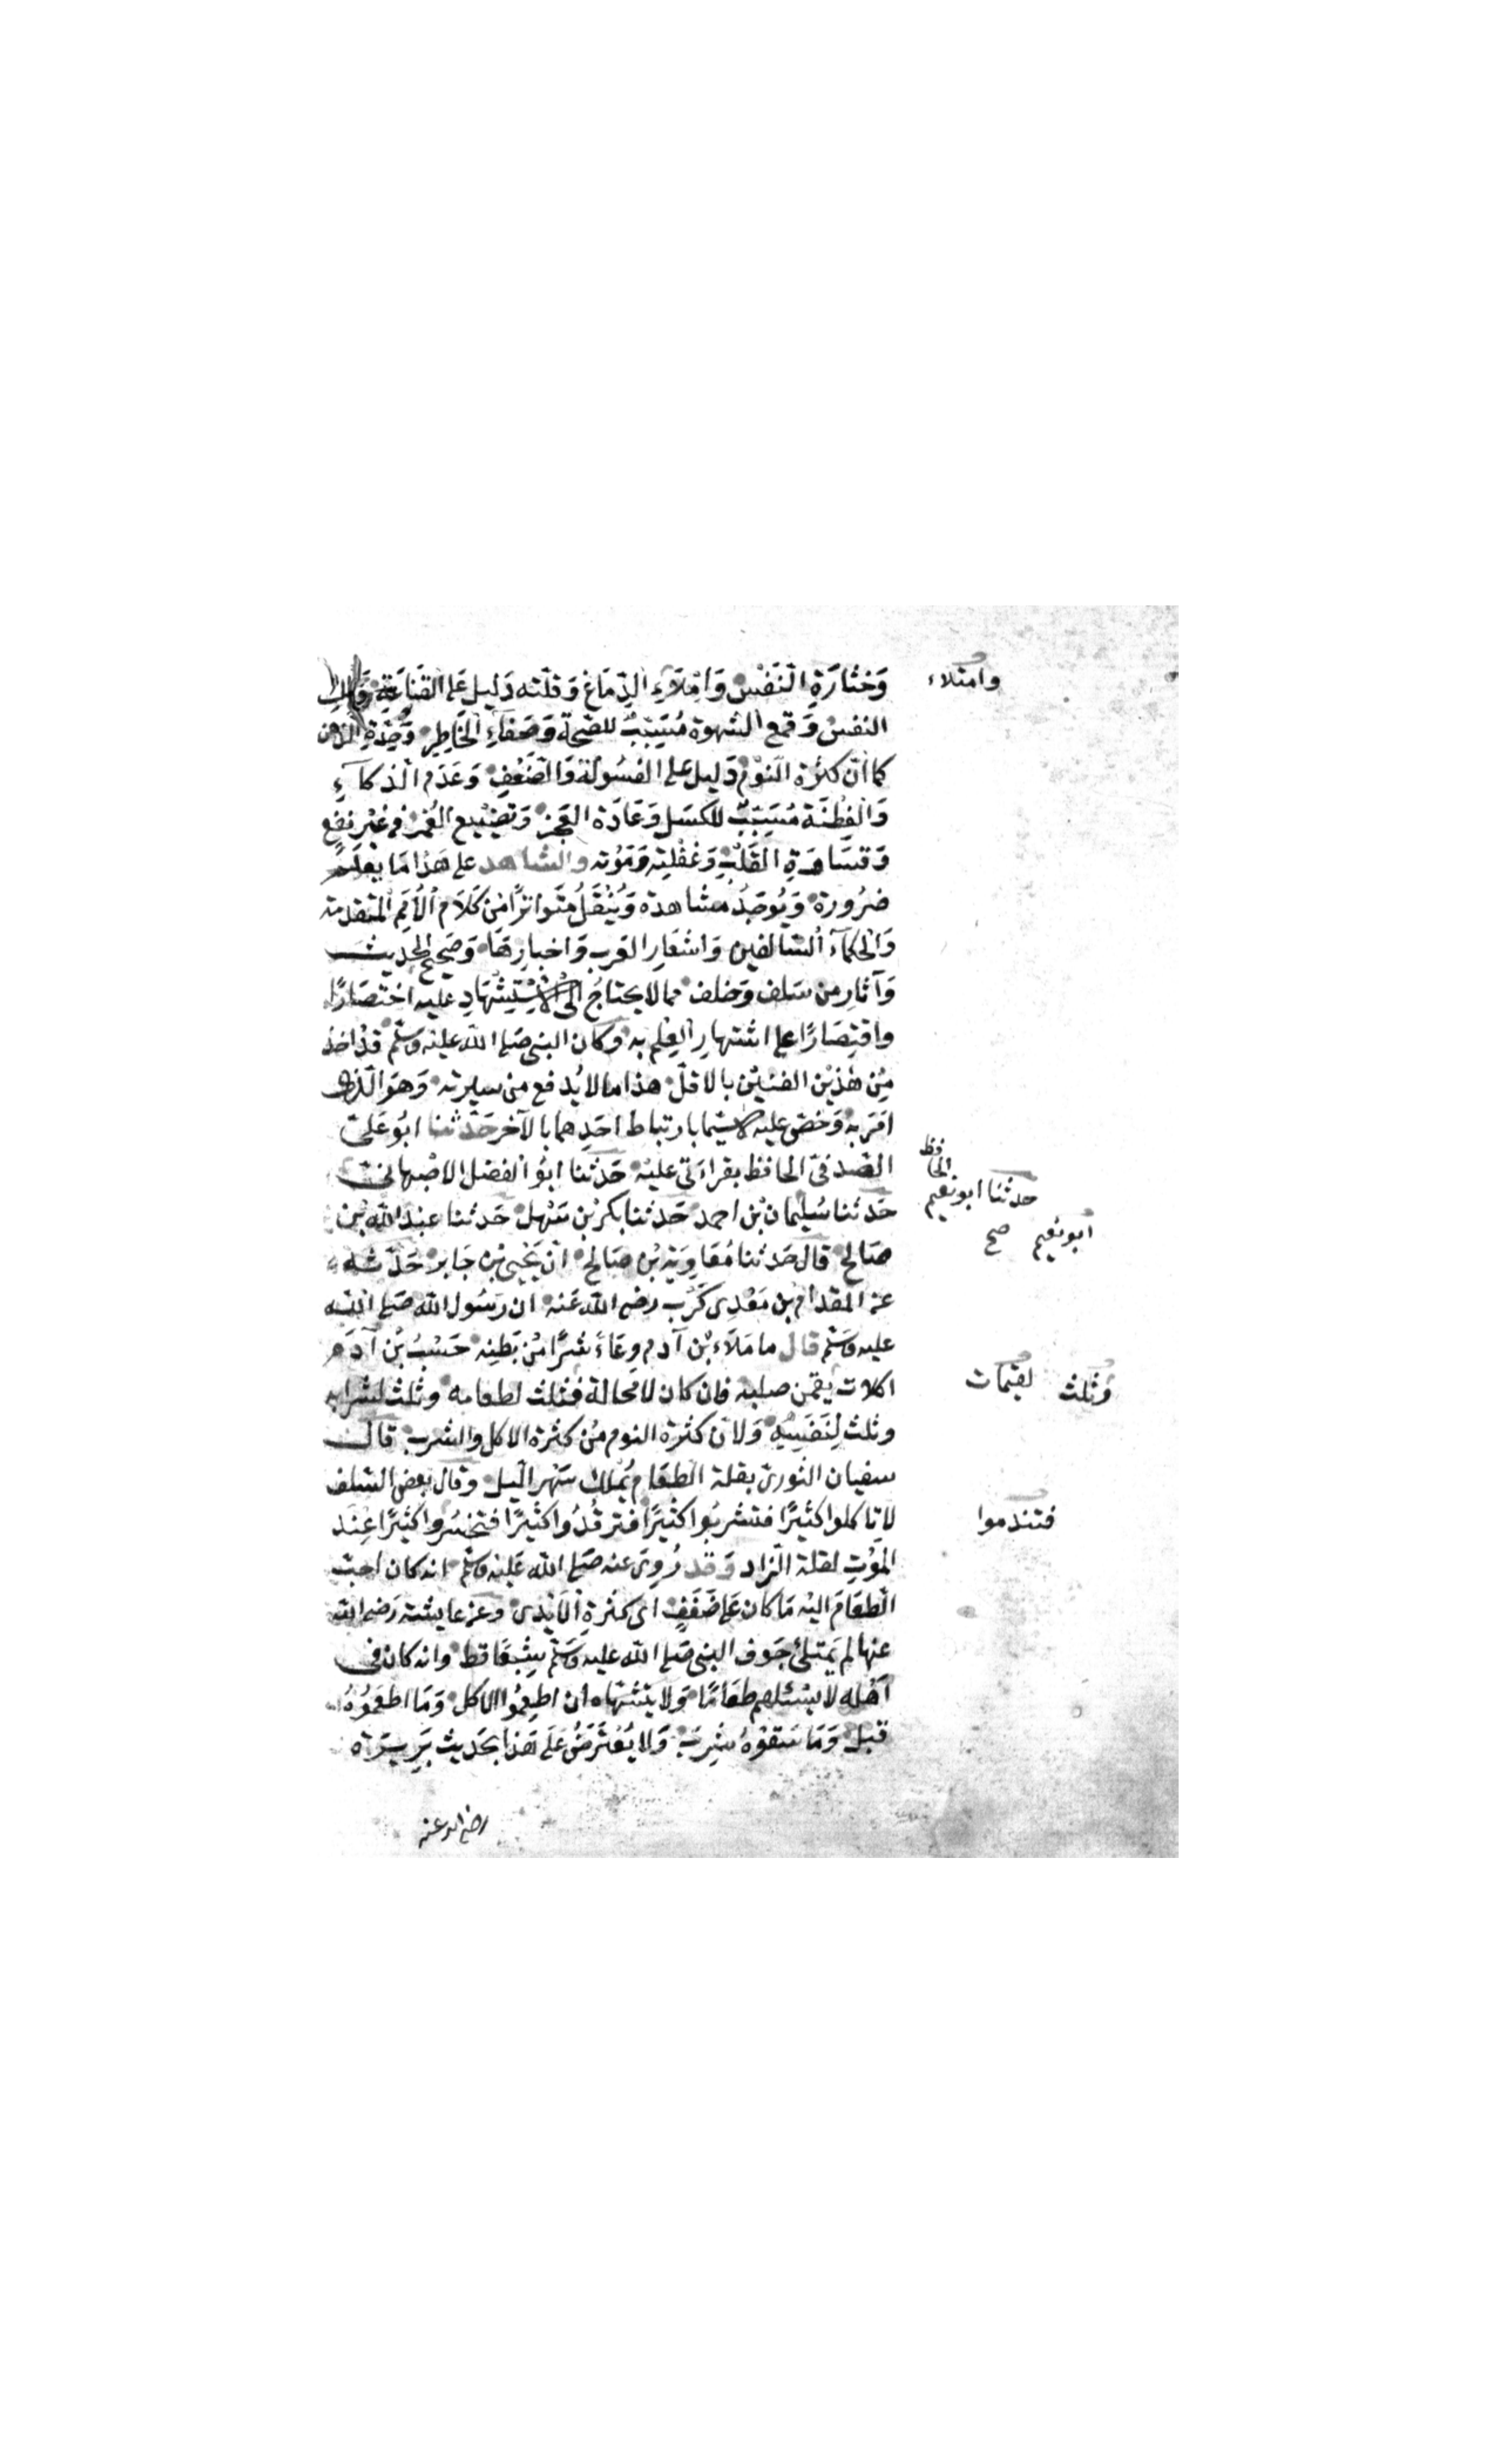 وَخَثَارَةِ النَّفْسِ وَامْتِلَاءِ الدِّمَاغِ وَقلّته دَليل عَلى القَنَاعَةِ وَمِلكِ
النفسِ وَقمع الشهوة مُسَبِّبٌ للصّحّة وَصَفاءِ الخَاطِرِ وَحِدَّةِ الذهن
كما أنّ كثرة النَوْمِ دَليل على الفسُولَة وَالضّعْفِ وَعَدَم الذكاءِ
وَالفِطْنَة مُسَبِّبٌ للكسَلِ وَعَادَة العَجز وَتضييع العُمْر في غَيْر نفع
وَقسَاوَةِ القَلْبِ وَغفْلتِه وَمَوْته والشاهد على هَذا مَا يعْلم
ضرُورة وَيُوجَدُ مشاهدة وَيُنْقَلُ مُتَواترًا مِن كَلَام الأُمَمِ المتقدمة
وَالحكمآء السّالفين وَاشعَارِ العَرب وَاخبارِهَا وَصَحِيح الحديث
وَآثارِ من سَلف وَخلف مما لا يحتاجُ إلى الاسْتِشْهَادِ عليه اختصَارًا
واقتِصَارًا على اشتهارِ العِلمِ به وكان النبى صَلى الله عليه وَسَلّم قدْ اخذ
مِن هٰذَيْن الفنيّن بالاقلّ هذا ما لا يُدفع من سيرته وَهوَ الّذى
امَرَ به وَحَضّ عليه لاسيّما بارتباط احَدِهما بالآخر حَدّثنا ابُو عَلى
الصّدفىّ الحافظ بقراءتى عليْه حَدّثنا ابُو الفضل الاصْبهانى
حَدثنا سُليْمان بْن احمد حَدثنا بكر بْن سَهْل حَدثنا عبْد الله بْن
صَالح قال حَدثنا مُعَاوِيَة بْن صَالح انّ يَحْيى بْن جَابر حَدّثه
عن المقدام بْن مَعْدِى كَرِب رضى الله عَنه ان رَسُول الله صَلى الله
عليه وسَلّم قال ما مَلَاءَ بْن آدم وِعَاءً شرًّا مْن بَطنِه حَسْبُ بْن آدَم
اكلات يقمن صلبه فان كان لا محالة فثلث لطعامه وثلث لشرابه
وثلث لِنَفَسِهِ وَلانّ كثرة النوم مْن كثرة الاكل والشرب قال
سفيان الثورىّ بقلة الطعَام يُملك سَهَر اليل وقال بعض السّلف
لا تاكلوا كثيرًا فتشربُوا كثيرًا فترقُدُوا كثيرًا فتخسروا كثيرًا عِنْد
المَوْتِ لقلة الزاد وَقد رُوِىَ عنه صَلى الله عَليْه وسلم انه كان احبّ
الطعَام اليْه مَا كان عَلى ضَفَفٍ اى كثرةِ الأيْدى وعن عايشة رَضى الله
عنها لم يَمتلئ جَوف النبى صَلى الله عليه وَسَلم شِبَعًا قط وانه كان فى
اهْله لا يسْئلهم طعَامًا وَلا يتشَهّاه ان اطعمُوا اكل وَمَا اطعَمُوْهُ
قبل وَمَا سَقوْهُ شرِبَ وَلا يُعْتَرَضُ عَلى هَذا بحَديث بَرِيرَة
رضى الله عنه
وامتلاء
الحافظ
حدثنا ابو نعيم
ابو نعيم صح
وثلث
لقيمات
فتندموا